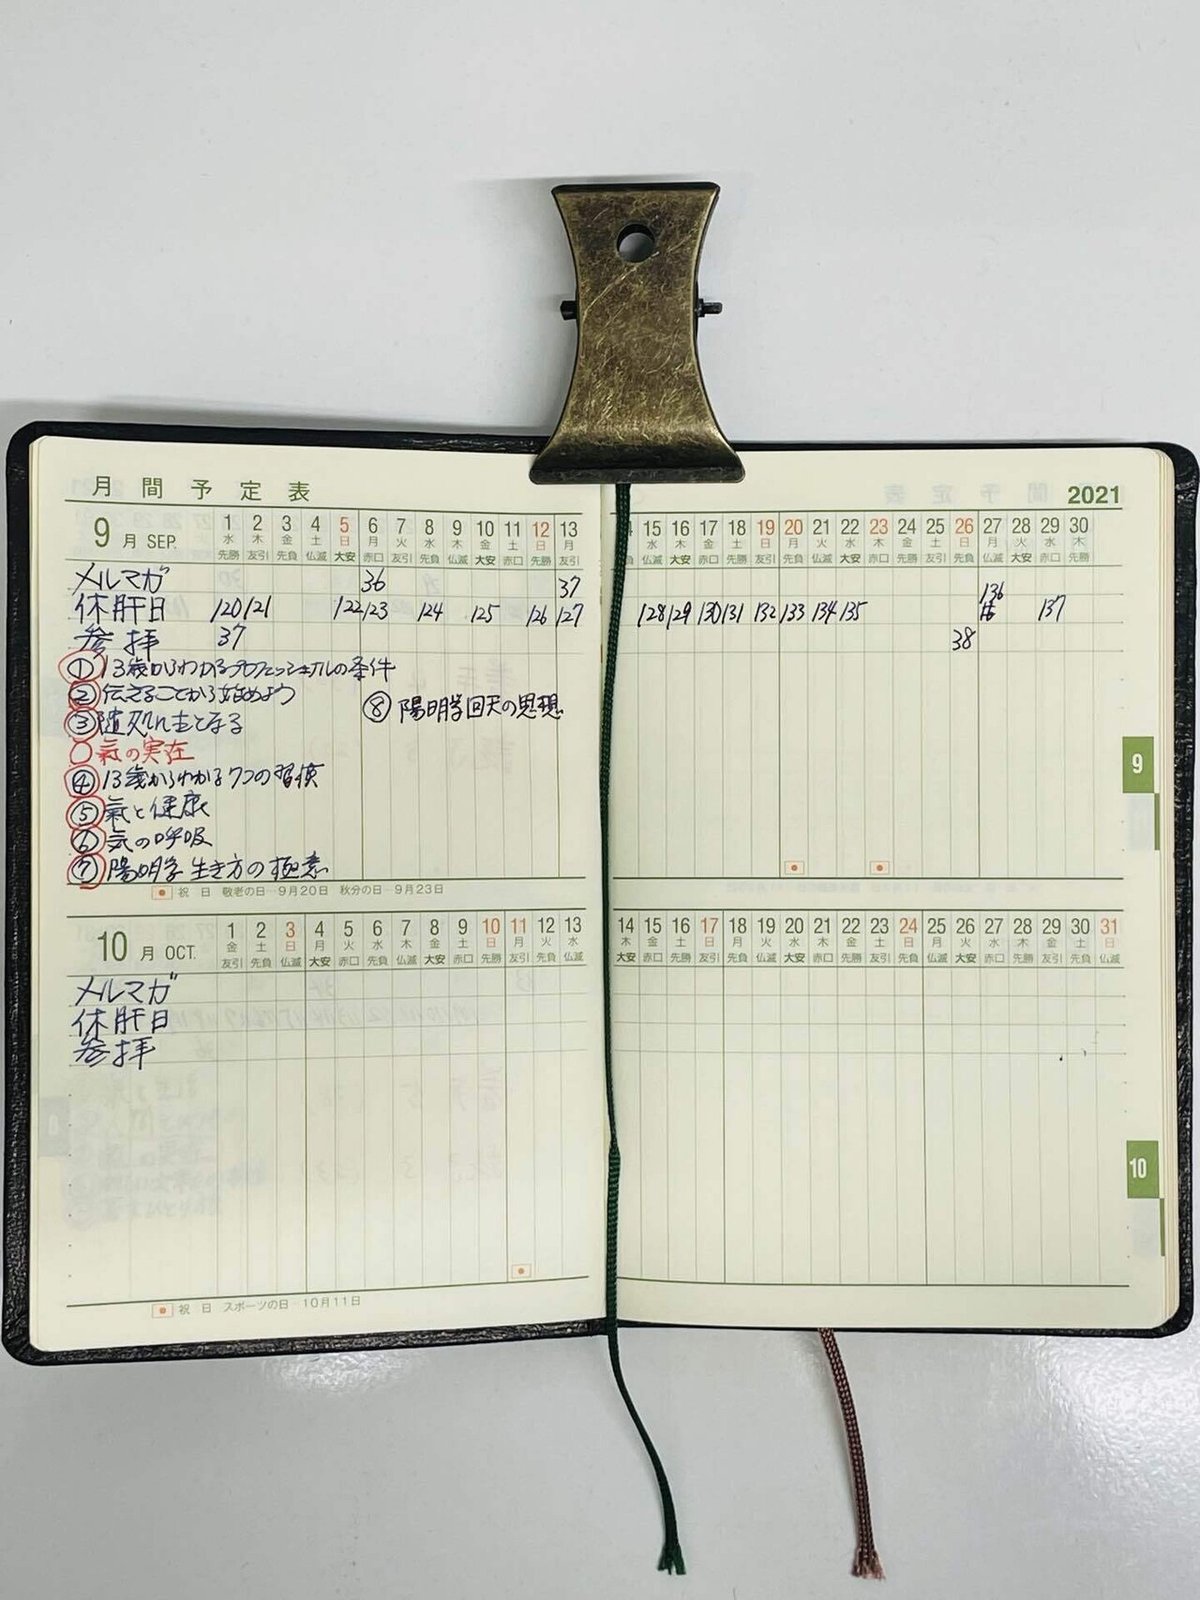 月間予定表
2021
9月 SEP. 1 2 3 4 5 6 7 8 9 10 11 12 13
水 木 金 土 日 月 火 水 木 金 土 日 月
先勝 友引 先負 仏滅 大安 赤口 友引 先負 仏滅 大安 赤口 先勝 友引
15 16 17 18 19 20 21 22 23 24 25 26 27 28 29 30
水 木 金 土 日 月 火 水 木 金 土 日 月 火 水 木
仏滅 大安 赤口 先勝 友引 先負 仏滅 大安 赤口 先勝 友引 先負 仏滅 大安 赤口 先勝
メルマガ 36 37
休肝日 120 121 122 123 124 125 126 127 128 129 130 131 132 133 134 135 136 137
参拝 37 38
① 13歳からわかるプロフェッショナルの条件
② 伝えることから始めよう
③ 随処に主となる
○ 氣の実在
④ 13歳からわかる7つの習慣
⑤ 氣と健康
⑥ 気の呼吸
⑦ 陽明学 生き方の極意
⑧ 陽明学回天の思想
9
祝日 敬老の日…9月20日 秋分の日…9月23日
10月 OCT. 1 2 3 4 5 6 7 8 9 10 11 12 13
金 土 日 月 火 水 木 金 土 日 月 火 水
友引 先負 仏滅 大安 赤口 先勝 仏滅 大安 赤口 先勝 友引 先負 仏滅
14 15 16 17 18 19 20 21 22 23 24 25 26 27 28 29 30 31
木 金 土 日 月 火 水 木 金 土 日 月 火 水 木 金 土 日
大安 赤口 先勝 友引 先負 仏滅 大安 赤口 先勝 友引 先負 仏滅 大安 赤口 先勝 友引 先負 仏滅
メルマガ
休肝日
参拝
10
祝日 スポーツの日…10月11日